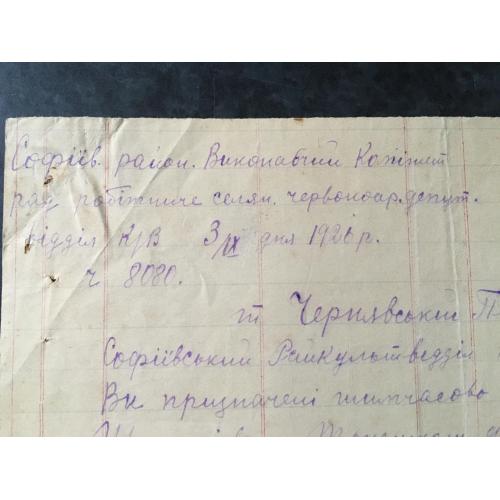 Софіїв. район. Виконавчий Комітет
рад робітниче селян. червоноар. депут.
відділ К/В 3/IX дня 1926 р.
ч 8080.
т Чернявський П
Софіївський Райкультвідділ
Ви призначені тимчасово